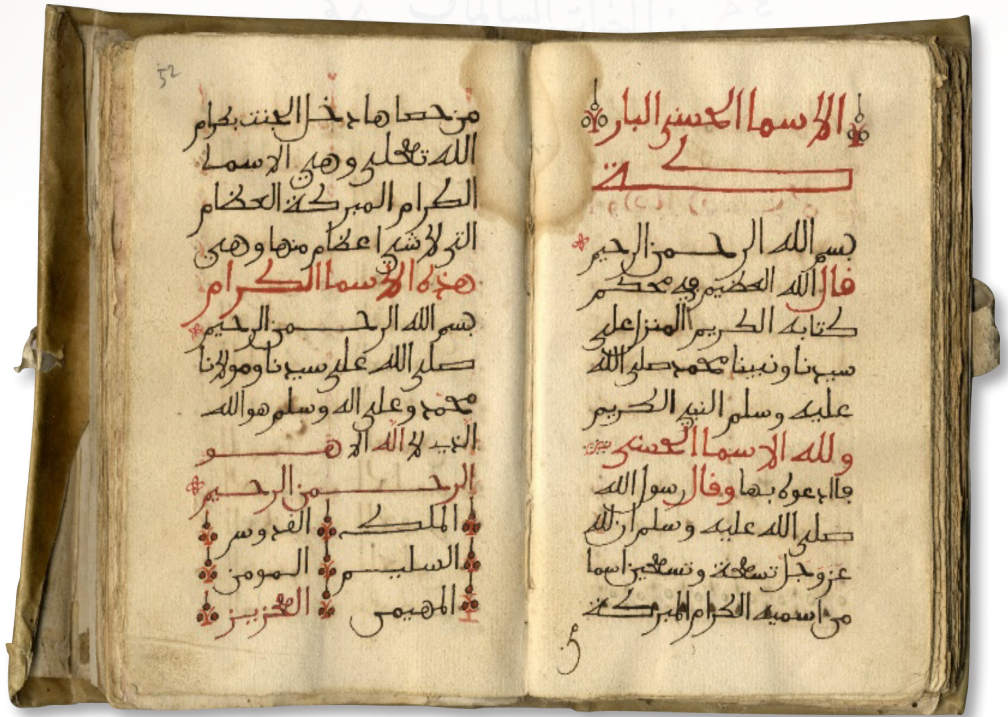 الاسما الحسنى البار
كة
بسم الله الرحمن الرحيم
قال الله العظيم في محكم
كتابه الكريم المنزل على
سيدنا ونبينا محمد صلى الله
عليه وسلم النبي الكريم
ولله الاسما الحسنى
فاادعوه بها وقال رسول الله
صلى الله عليه وسلم ان لله
عز وجل تسعة وتسعين اسما
من اسميه الكرام المبركة
52
من حصاها دخل الجنت بكرام
الله تعلى وهي الاسما
الكرام المبركة العظام
التي لا شي اعظام منها وهي
هذه الاسما الكرام
بسم الله الرحمن الرحيم
صلى الله على سيدنا ومولانا
محمد وعلى اله وسلم هو الله
الذي لا اله الا هو
الرحمن الرحيم
الملك القدوس
السليم المومن
المهيمن العزيز